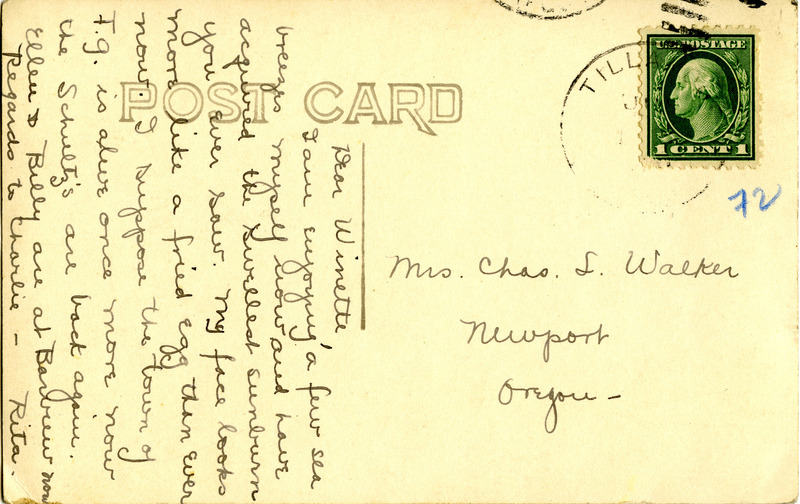 POST CARD
TILLA
U.S. POSTAGE
1 CENT 1
72
Dear Winette
I am enjoying a few sea
breezes myself now and have
acquired the swellest sunburn
you ever saw. My face looks
more like a fried egg than ever
now. I suppose the town of
F.G. is alive once more now
the Schultz's are back again.
Ellen & Billy are at Barview now
Regards to Charlie – Rita.
Mrs. Chas. S. Walker
Newport
Oregon –